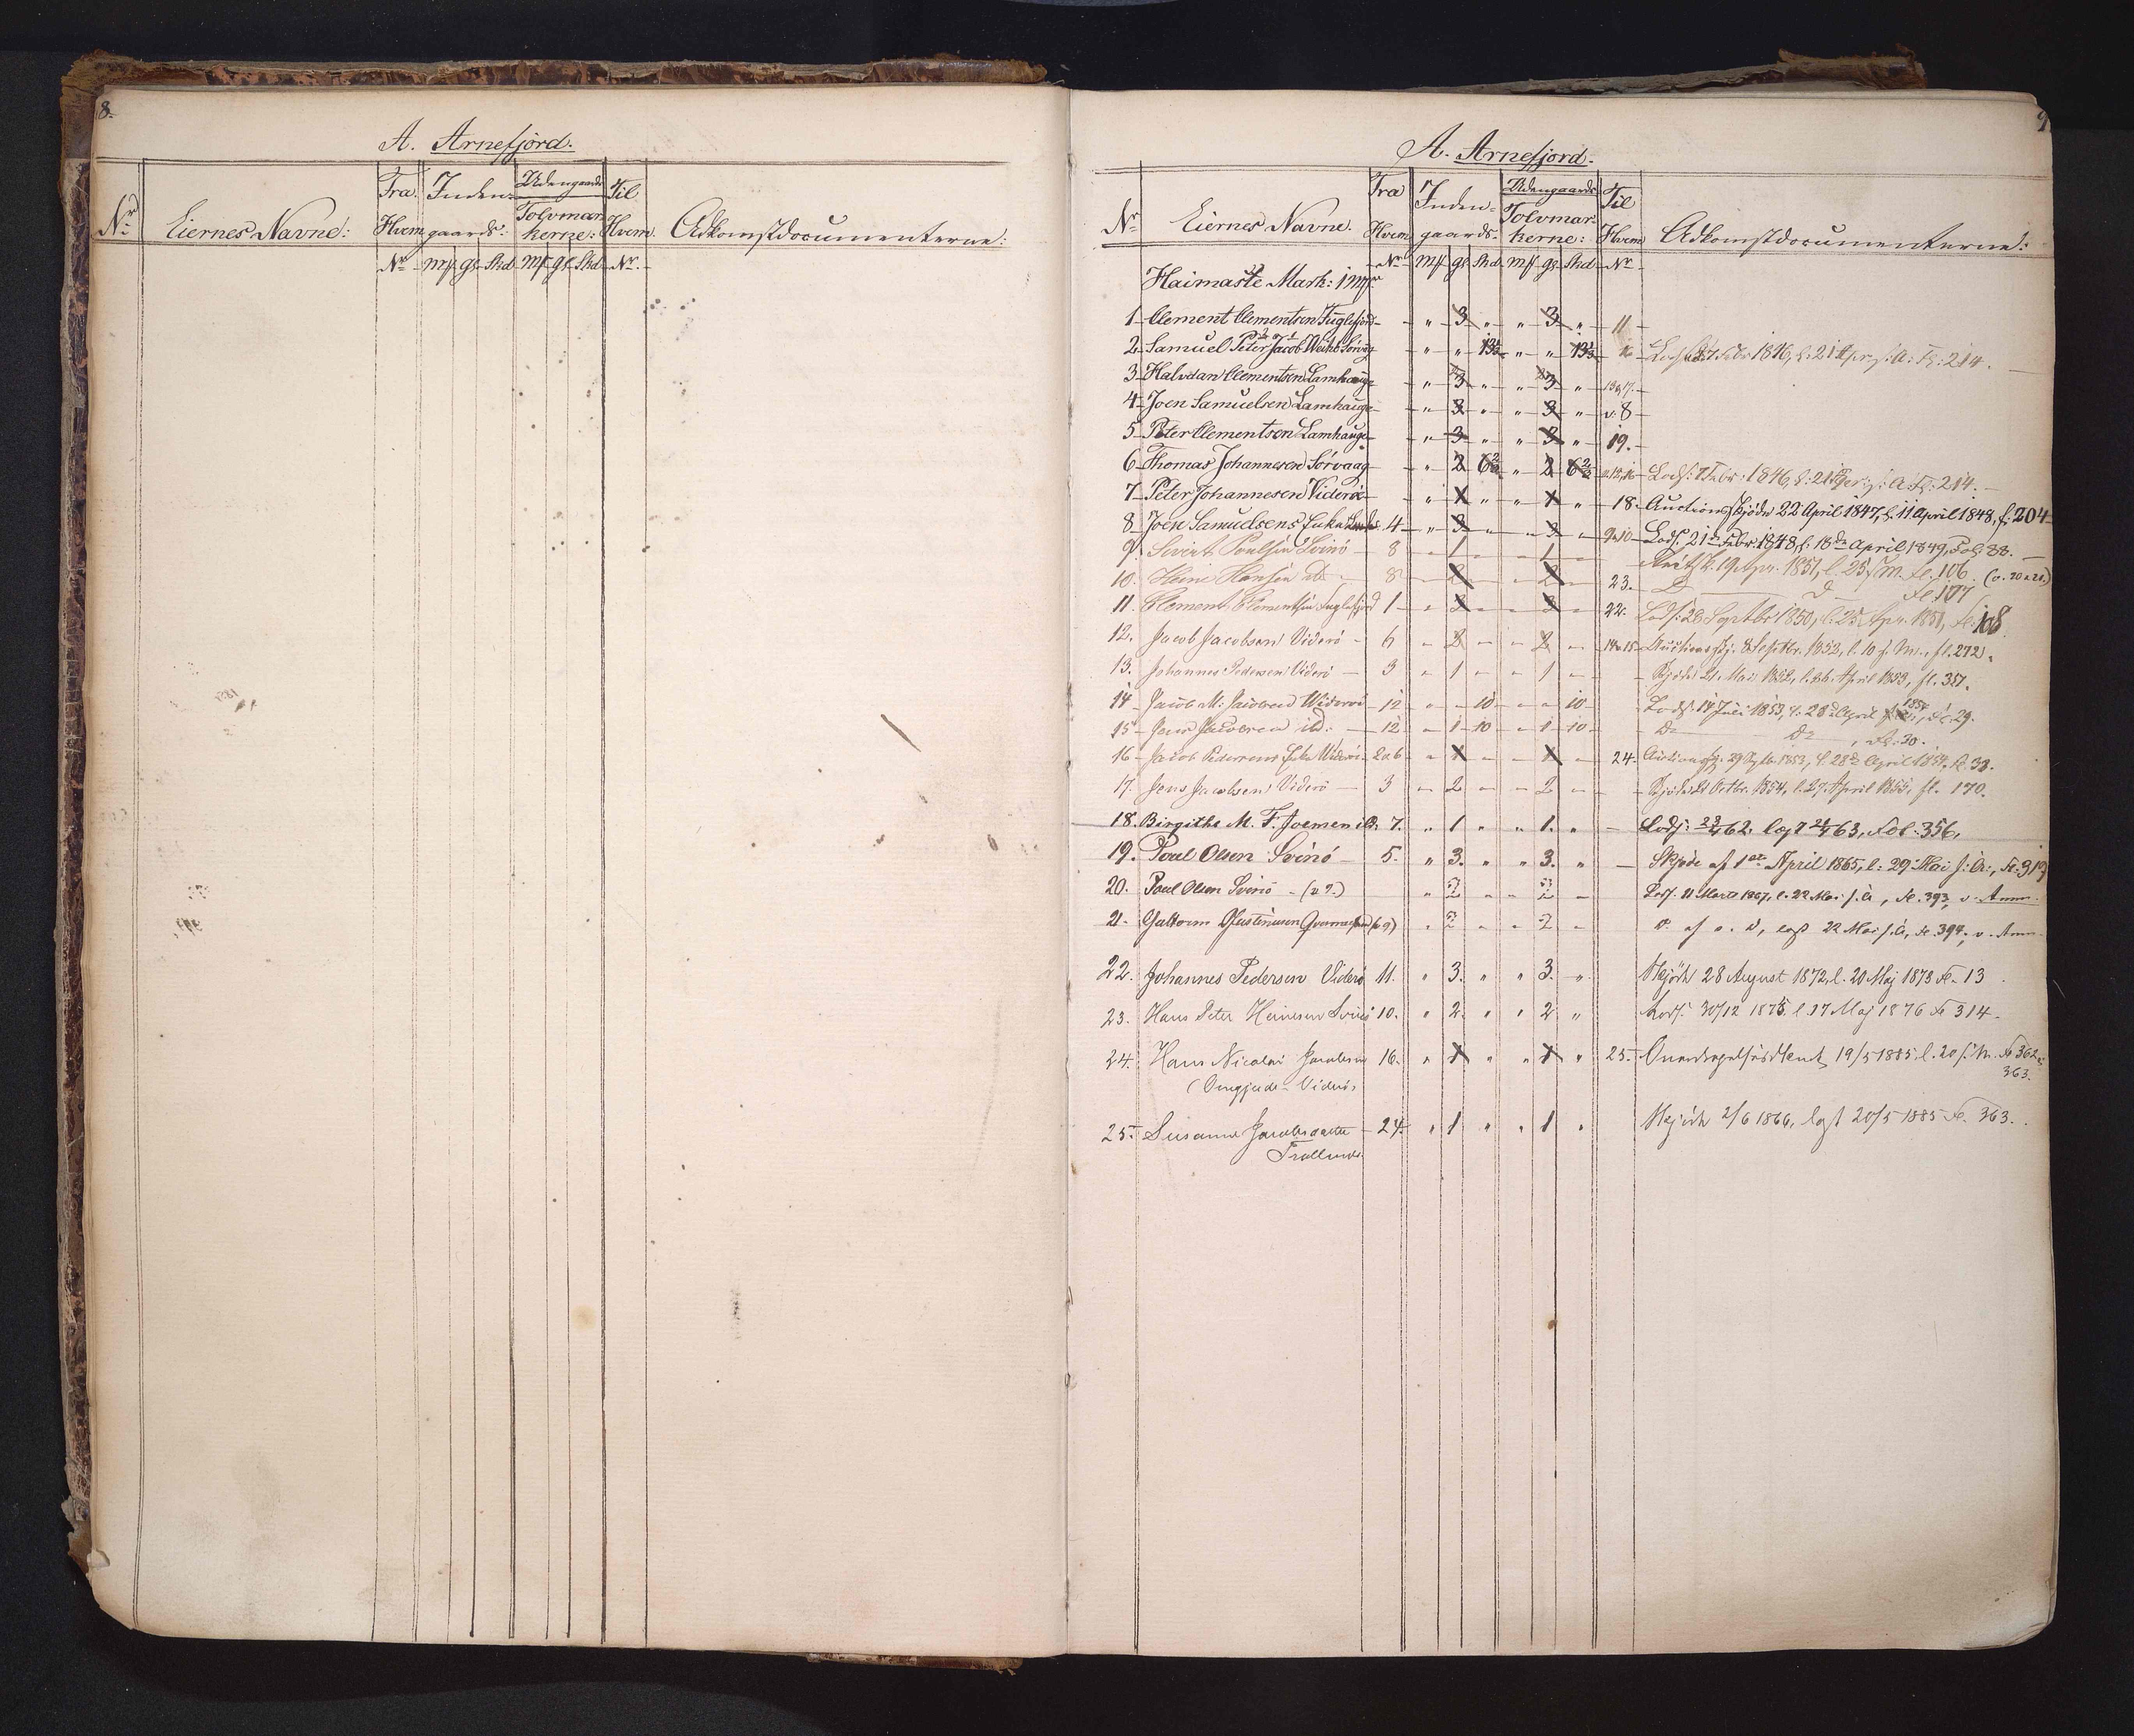 8.
A. Arnefjörd.
Nr. Eiernes Navne: Fra Hvem Inden gaards: Udengaards Tolvmar kerne: Til Hvem. Adkomstdocumenterne:
Nr. mk gl. Skd mk gl Skd Nr.
9
A. Arnefjord.
Nr. Eiernes Navne. Fra Hvem Inden gaards Udengaards Tolvmar kerne: Til Hvem Adkomstdocumenterne:
Nr mk gl. Skd mk gl. Skd Nr
Haimaste Mark: 1 mk
1 Clement Clementsen Fuglefjord " 3 " " 3 " 11
2 Samuel Peter Jacob Sörvaag " " 13½ " " 13½ 16 1846, l. 21 Apr. s. A. Fl: 214.
3 Halvdan Clementsen Lamhauge " 3 " " 3 " 13 & 17.
4 Joen Samuelsen Lamhauge " 3 " " 3 " v. 8
5 Peter Clementsen Lamhauge " 3 " " 3 " 19.
6 Thomas Johannesen Sörvaag " 2 6⅔ " 2 6⅔ 12, 16 Lods: 7 Febr: 1846, l: 21 Apr: s: A Fl: 214.
7 Peter Johannesen Viderö " 1 " " 1 " 18. Auctionsskjöde 22 April 1847, l. 11 April 1848, f. 204
8 Joen Samuelsens Enke 4 " 3 " " 3 " 9 & 10 Lods. 21 Febr. 1848, l. 18de April 1849, Fol. 88.
9. Sivert Poulsen Svinö 8 " 1 " " 1 " 19 Apr. 1851, l. 25 s. M. Fl. 106. (v. 20 & 21.)
10. Heine Hansen do 8 " 2 " " 2 " 23. Do Do Fl. 107
11. Clement Clementsen Fuglefjord 1 " 3 " " 3 " 22. Lods: 28 Septbr 1850, l. 25 Apr. 1851, Fl. 108
12. Jacob Jacobsen Viderö 6 " 2 " " 2 " 14 & 15 Auctionsskj. 8 Septbr. 1852, l. 10 s. M., fl. 272.
13. Johannes Pedersen Viderö 3 " 1 " " 1 " Skjöde 21 Mai 1852, l. 26 April 1853, fl. 357.
14 Jacob M. Jacobsen Viderö 12 " " 10 " " 10 Lods. 14 Juli 1853, l. 28de April 1854, Fl. 29.
15 Jens Jacobsen ibd: 12 " 1 10 " 1 10 Do Do, Fl: 30.
16 Jacob Pedersens Enke Viderö 2 & 6 " 1 " " 1 " 24. Auctionsskj. 29 1853, l. 28de April 1854, Fl. 32.
17. Jens Jacobsen Viderö 3 " 2 " " 2 " Skjöde 21 Octbr. 1854, l. 27 April 1855, fl. 170.
18. Birgithe M. F. Joensen ibd. 7. " 1 " " 1. " Lods: 23/4 62, læst 24/4 63, Fol: 356,
19. Poul Olsen Svinö 5. " 3. " " 3. " Skjöde af 1ste April 1865, l: 29 Mai s: A:, Fl: 319
20. Poul Olsen Svinö (v 9.) " 2 " " 2 " Lods. 11 Marts 1867, l. 22 Mai s. A., Fl. 393, v. Anm.
21. (v 9) " 2 " " 2 " D. af s. d., læst 22 Mai s. A., Fl. 394; v. Anm.
22. Johannes Pedersen Viderö 11. " 3. " " 3. " Skjöde 28 August 1872, l. 20 Maj 1873 Fl. 13.
23. Hans Peter Heinesen Svinö 10. " 2. " " 2 " Lods: 30/12 1875. l. 17 Maj 1876 Fl 314.
24. Hans Nicolai Jacobsen 16. " 1 " " 1 " 25. 19/5 1885, l. 20 s. M. Fl 362 & 363.
(Qvigjede Viderö)
25. Susanne Jacobsdatter 24. " 1 " " 1 " Skjöde 2/6 1866, læst 20/5 1885 Fl. 363.
Tröllenæs.